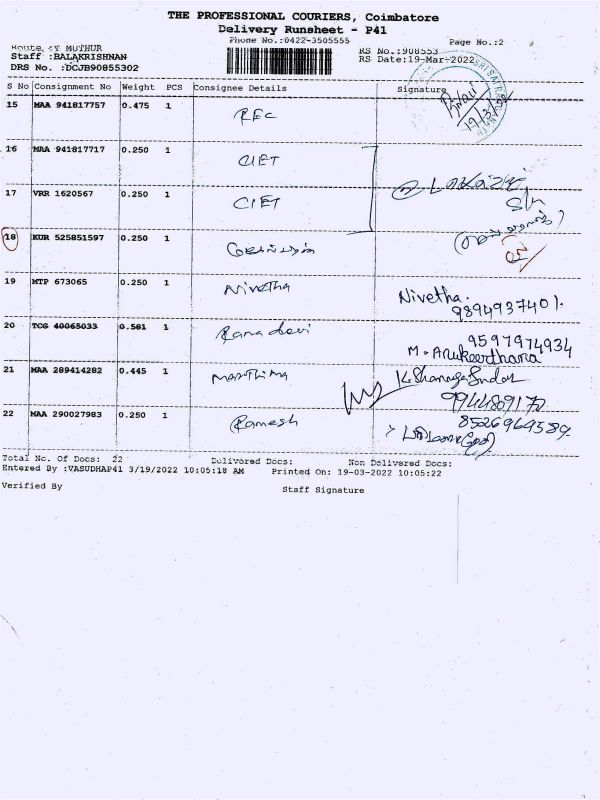 THE PROFESSIONAL COURIERS, Coimbatore
Delivery Runsheet - P41
Phone No.:0422-3505555
Page No.:2
MUTHUR
RS No.:908553
Staff :BALAKRISHNAN
RS Date:19-Mar-2022
DRS No. :DCJB90855302
S No Consignment No Weight PCS Consignee Details Signature
15 MAA 941817757 0.475 1 REC
19/3/22
16 MAA 941817717 0.250 1 CIET
17 VRR 1620567 0.250 1 CIET
18 KUR 525851597 0.250 1
19 MTP 673065 0.250 1 Nivetha Nivetha.
9894937401.
20 TCG 40065033 0.581 1 Rama devi 9597974934
M. Anukeerthana
21 MAA 289414282 0.445 1 K. Shanmuga Sundar
22 MAA 290027983 0.250 1 Ramesh 8526969589
Total No. Of Docs: 22 Delivered Docs: Non Delivered Docs:
Entered By :VASUDHAP41 3/19/2022 10:05:18 AM Printed On: 19-03-2022 10:05:22
Verified By Staff Signature